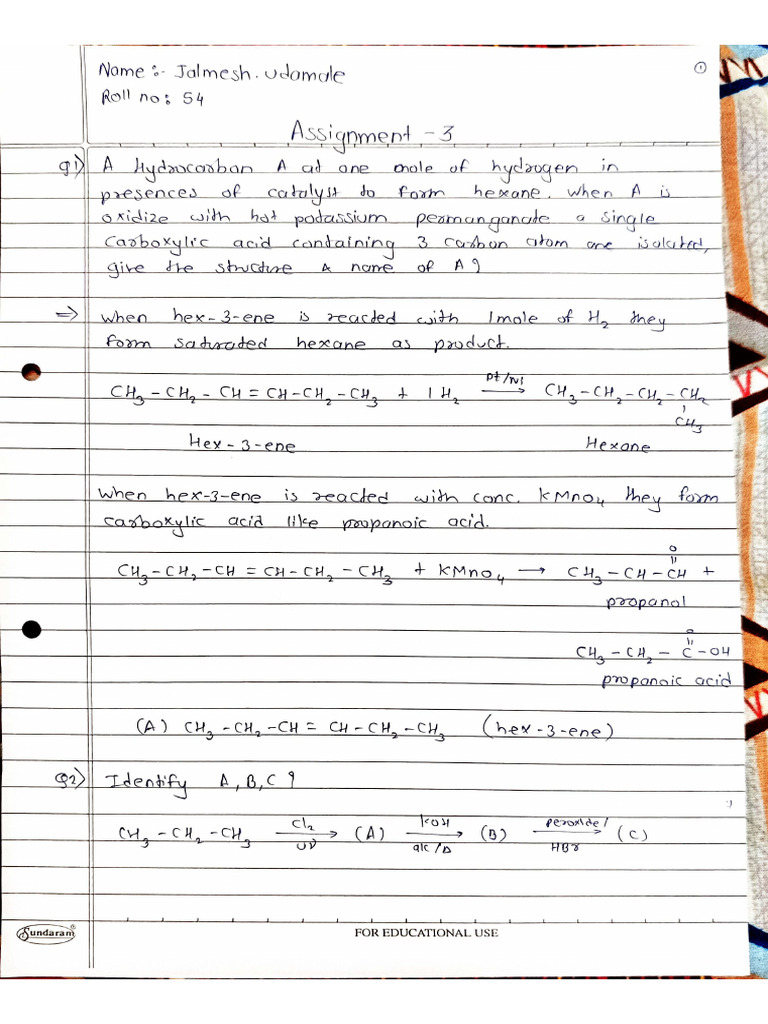 Name :- Jalmesh. Udamale
①
Roll no: 54
Assignment - 3
Q1) A Hydrocarbon A at one mole of hydrogen in
presences of catalyst to form hexane. When A is
oxidize with hot potassium permanganate a single
Carboxylic acid containing 3 carbon atom are isolated,
give the structure & name of A?
⇒ When hex-3-ene is reacted with 1mole of H₂ they
form saturated hexane as product.
CH₃-CH₂-CH=CH-CH₂-CH₃ + 1H₂ —Pt/Ni→ CH₃-CH₂-CH₂-CH₂
CH₃
Hex-3-ene Hexane
When hex-3-ene is reacted with conc. KMnO₄ they form
carboxylic acid like propanoic acid.
O
CH₃-CH₂-CH=CH-CH₂-CH₃ + KMnO₄ → CH₃-CH-CH +
propanol
O
CH₃-CH₂-C-OH
propanoic acid
(A) CH₃-CH₂-CH=CH-CH₂-CH₃ (hex-3-ene)
Q2) Identify A, B, C?
CH₃-CH₂-CH₃ —Cl₂/UV→ (A) —KOH/alc/Δ→ (B) —peroxide/HBr→ (C)
Sundaram®
FOR EDUCATIONAL USE